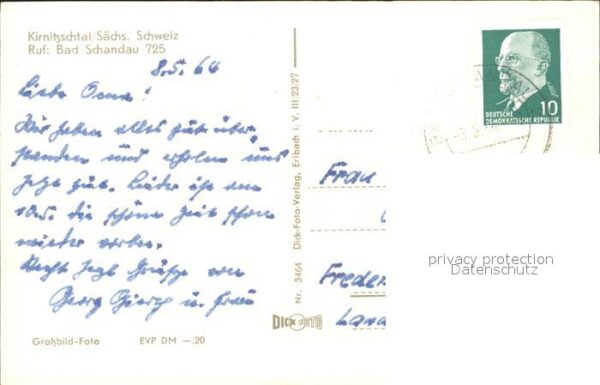 Kirnitzschtal/Sächs. Schweiz
Ruf: Bad Schandau 725
8.5.64
Liebe Oma!
Wir haben alles gut über-
standen und erholen uns
jetzt gut. Leider ist am
10.5. die schöne Zeit schon
wieder vorbei.
Recht herzl Grüße von
Georg u. Frau
Großbild-Foto EVP DM —.20
Nr. 3464 Dick-Foto-Verlag, Erlbach i. V. III 23/27
DICK FOTO
DEUTSCHE
DEMOKRATISCHE REPUBLIK
10
Frau
Freder
Land
privacy protection
Datenschutz